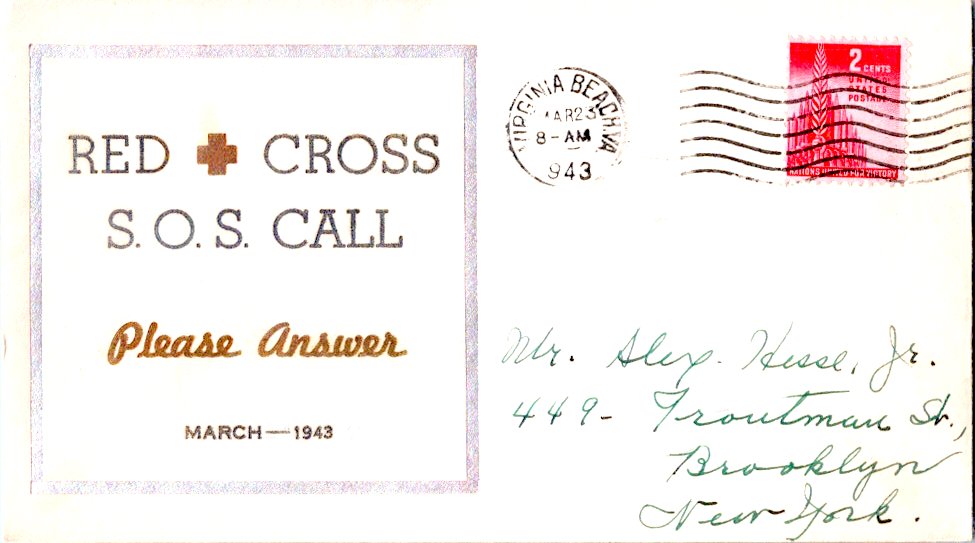 RED CROSS
S. O. S. CALL
Please Answer
MARCH — 1943
VIRGINIA BEACH, VA
MAR 23
8 - AM
1943
2 CENTS
UNITED
STATES
POSTAGE
NATIONS UNITED FOR VICTORY
Mr. Alex. Hesse, Jr.
449 - Troutman St.,
Brooklyn
New York.